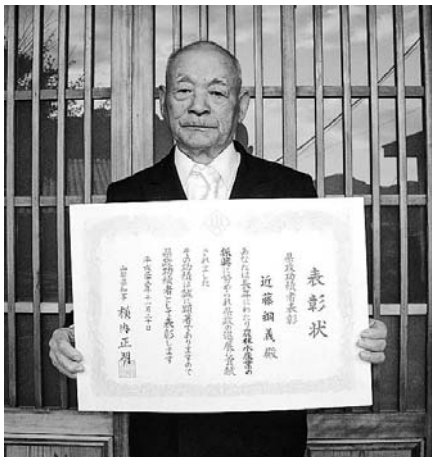 表彰状
県政功績者表彰
近藤綱義殿
あなたは長年にわたり農林水産業の
振興に努められ県政の伸展に貢献
されました
その功績は誠に顕著でありますので
県政功績者として表彰します
平成 年十一月二十日
山梨県知事 横内正明